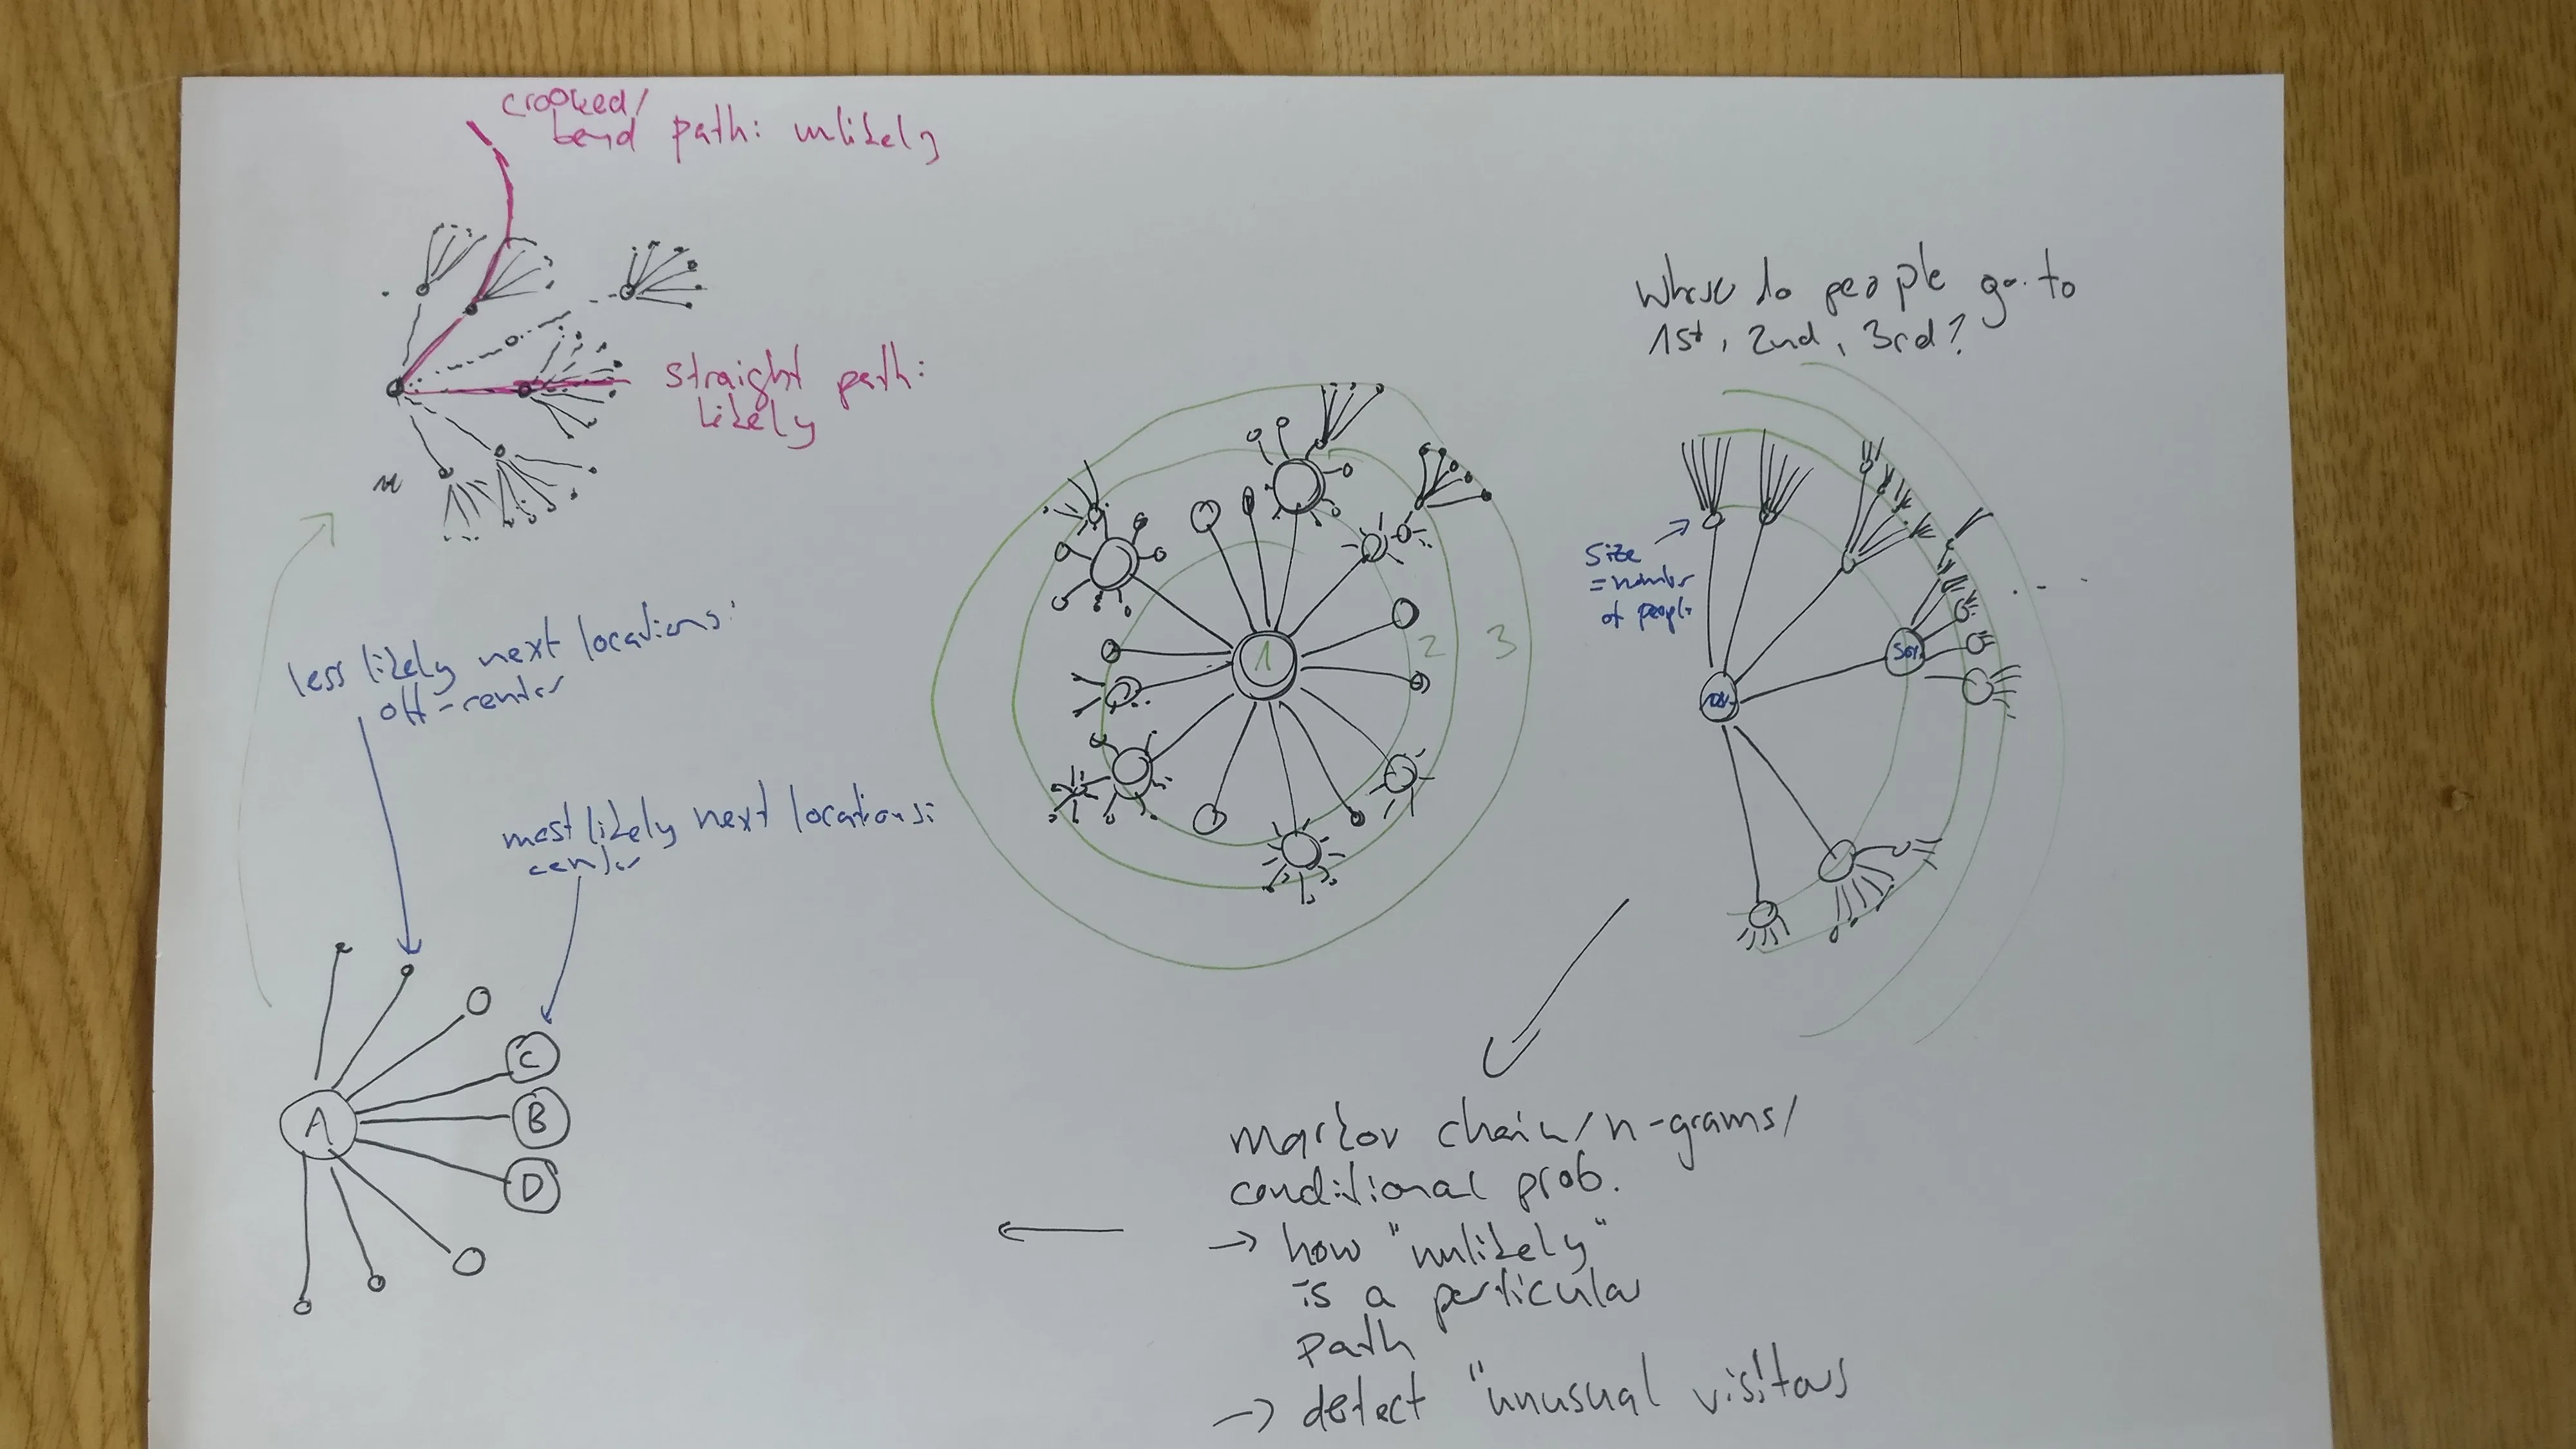 crooked/
bend path: unlikely
straight path:
likely
Where do people go to
1st, 2nd, 3rd?
size
= number
of people
50%
1
2
3
less likely next locations:
off-center
most likely next locations:
center
A
C
B
D
markov chain/n-grams/
conditional prob.
→ how "unlikely"
is a particular
path
→ detect "unusual visitors